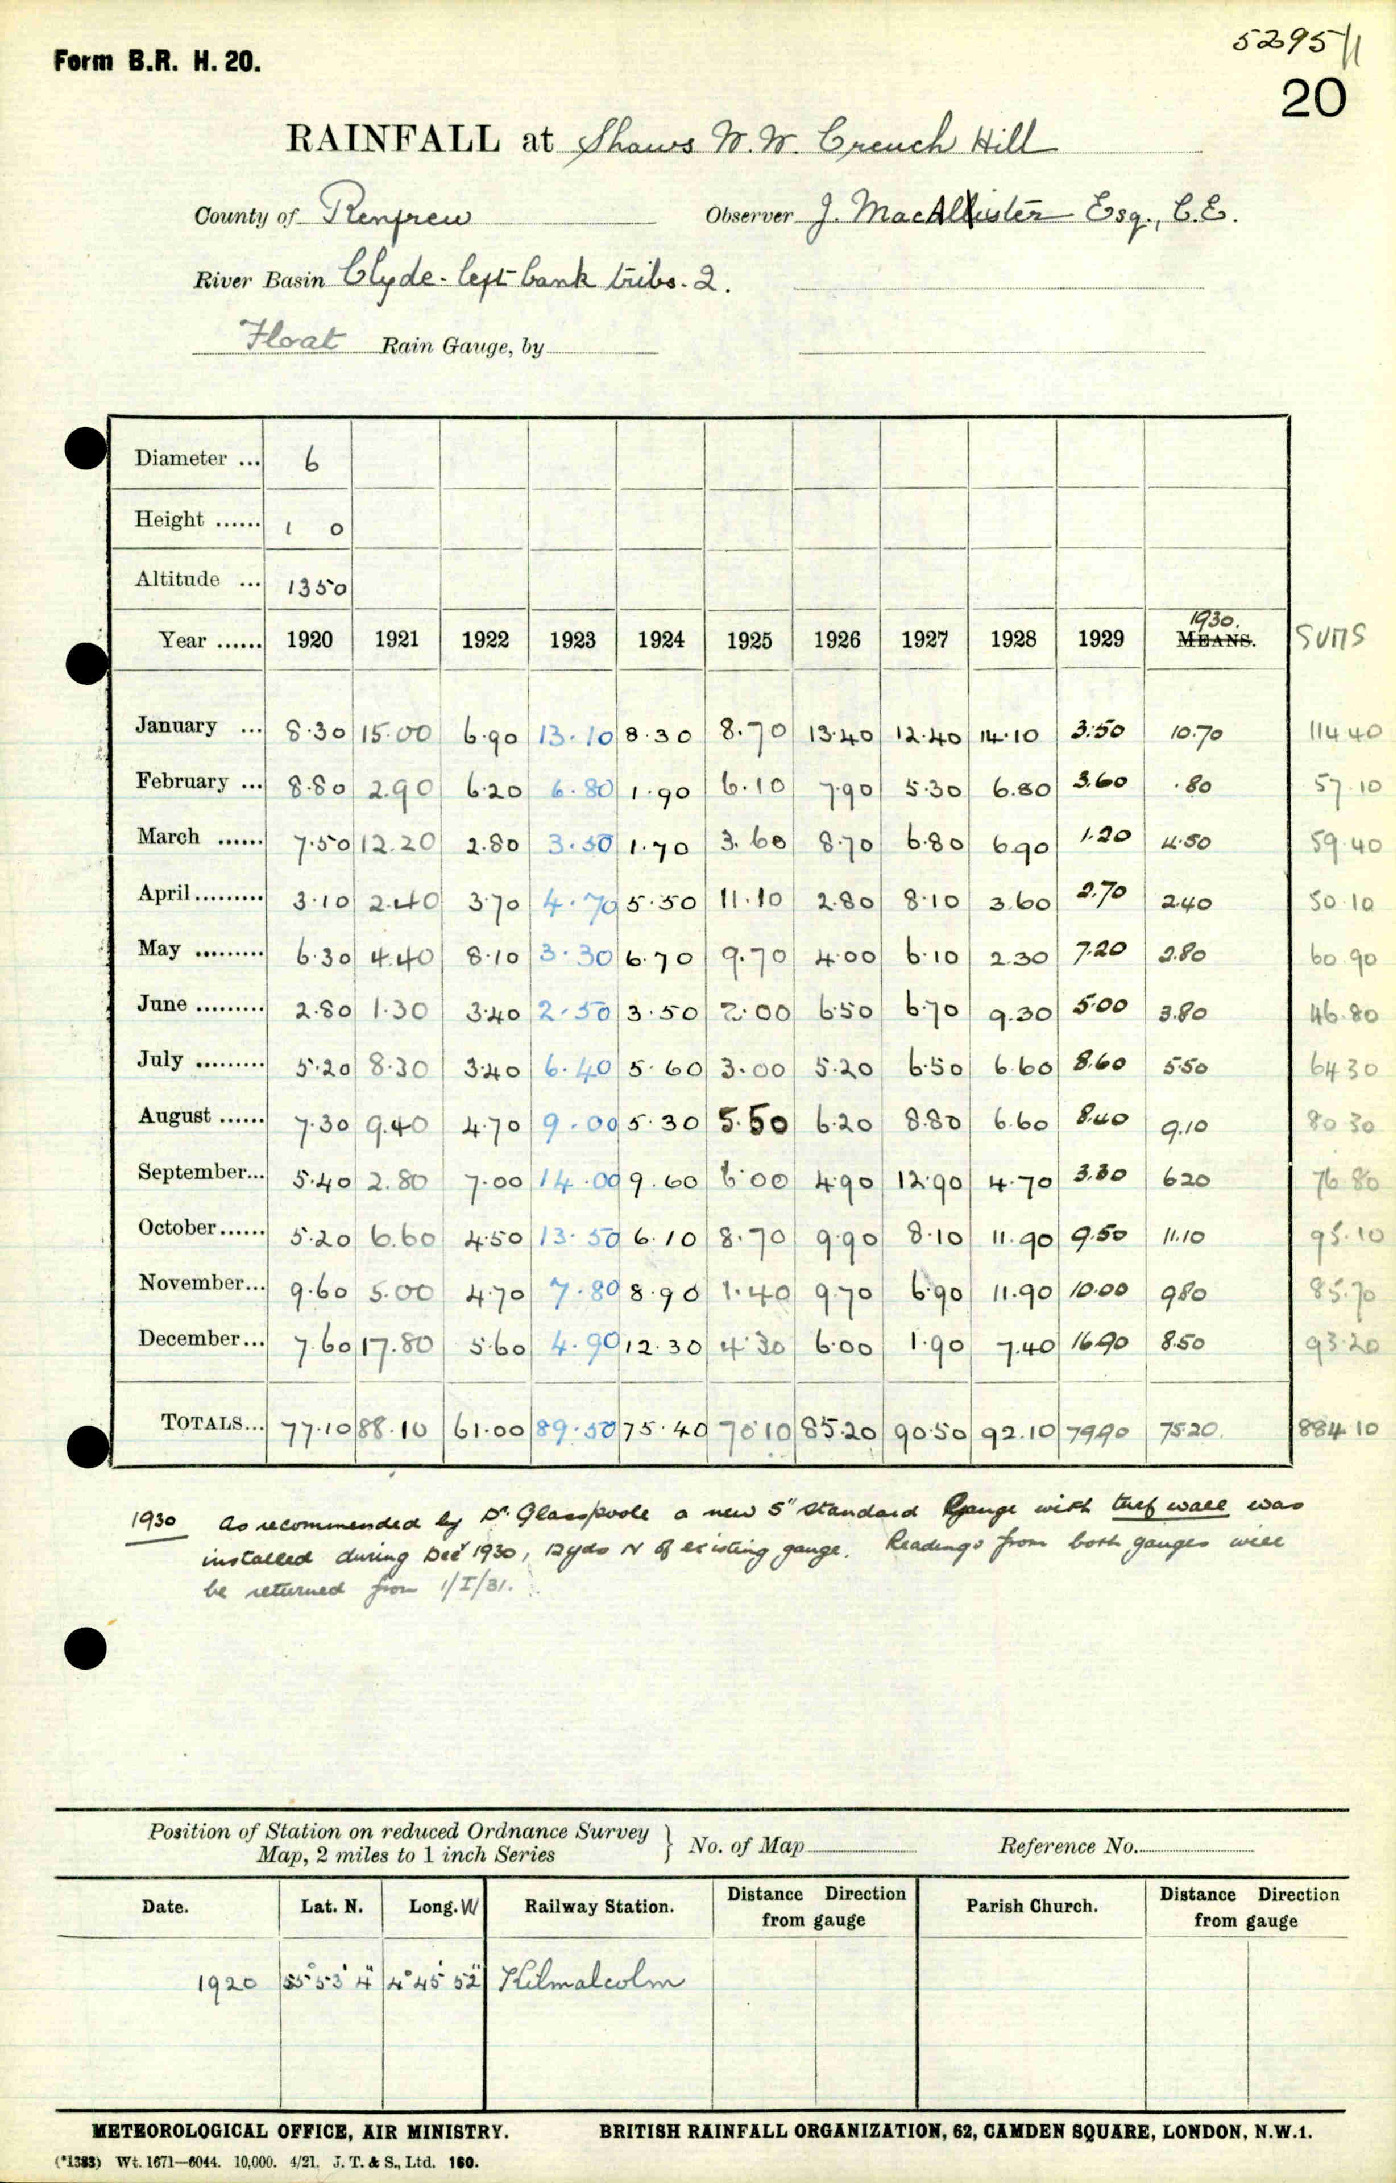 5295/1
20
Form B.R. H. 20.
RAINFALL at Shaws W.W. Creuch Hill
County of Renfrew Observer J. MacAllister Esq., C.E.
River Basin Clyde - left bank tribs. 2.
Float Rain Gauge, by
Diameter ... 6
Height ...... 1 0
Altitude ... 1350
1930.
Year ...... 1920 1921 1922 1923 1924 1925 1926 1927 1928 1929 MEANS. SUMS
January ... 8.30 15.00 6.90 13.10 8.30 8.70 13.40 12.40 14.10 3.50 10.70 114.40
February ... 8.80 2.90 6.20 6.80 1.90 6.10 7.90 5.30 6.80 3.60 .80 57.10
March ...... 7.50 12.20 2.80 3.50 1.70 3.60 8.70 6.80 6.90 1.20 4.50 59.40
April ......... 3.10 2.40 3.70 4.70 5.50 11.10 2.80 8.10 3.60 2.70 2.40 50.10
May ......... 6.30 4.40 8.10 3.30 6.70 9.70 4.00 6.10 2.30 7.20 2.80 60.90
June ......... 2.80 1.30 3.40 2.50 3.50 2.00 6.50 6.70 9.30 5.00 3.80 46.80
July ......... 5.20 8.30 3.40 6.40 5.60 3.00 5.20 6.50 6.60 8.60 5.50 64.30
August ...... 7.30 9.40 4.70 9.00 5.30 5.50 6.20 8.80 6.60 8.40 9.10 80.30
September... 5.40 2.80 7.00 14.00 9.60 6.00 4.90 12.90 4.70 3.30 6.20 76.80
October...... 5.20 6.60 4.50 13.50 6.10 8.70 9.90 8.10 11.90 9.50 11.10 95.10
November... 9.60 5.00 4.70 7.80 8.90 1.40 9.70 6.90 11.90 10.00 9.80 85.70
December... 7.60 17.80 5.60 4.90 12.30 4.30 6.00 1.90 7.40 16.90 8.50 93.20
TOTALS... 77.10 88.10 61.00 89.50 75.40 70.10 85.20 90.50 92.10 79.90 75.20. 884.10
1930 As recommended by Dr. Glasspoole a new 5" standard Gauge with turf wall was
installed during Decr 1930, 12 yds N of existing gauge. Readings from both gauges will
be returned from 1/I/31.
Position of Station on reduced Ordnance Survey
Map, 2 miles to 1 inch Series } No. of Map Reference No.
Date. Lat. N. Long. W Railway Station. Distance Direction from gauge Parish Church. Distance Direction from gauge
1920 55° 53' 4" 4° 45' 52" Kilmalcolm
METEOROLOGICAL OFFICE, AIR MINISTRY. BRITISH RAINFALL ORGANIZATION, 62, CAMDEN SQUARE, LONDON, N.W.1.
(*1383) Wt. 1671—6044. 10,000. 4/21. J. T. & S., Ltd. 160.